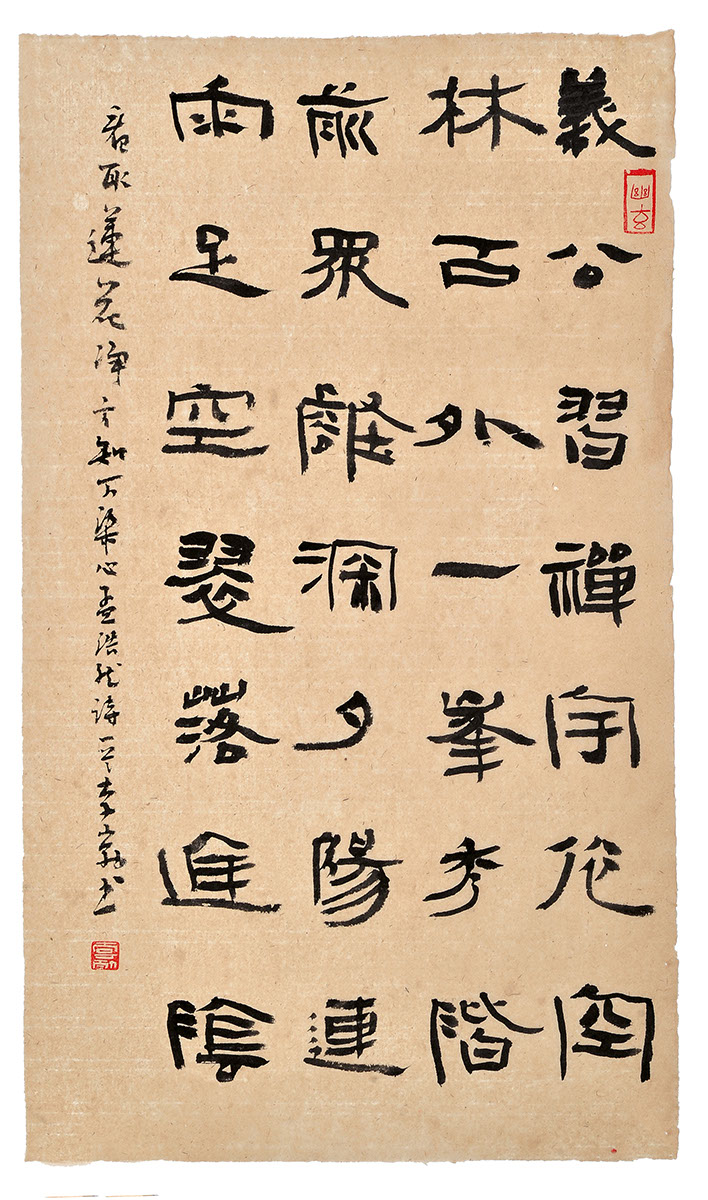 幽玄
義公習禪宇依空
林戶外一峯秀階
前眾壑深夕陽連
雨足空翠落庭陰
看取蓮花淨方知不染心孟浩然詩李書